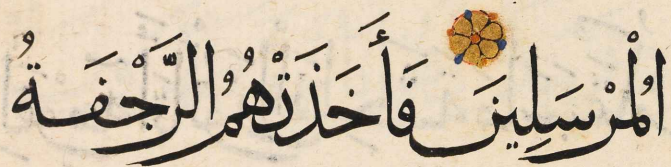 الْمُرْسَلِينَ فَأَخَذَتْهُمُ الرَّجْفَةُ